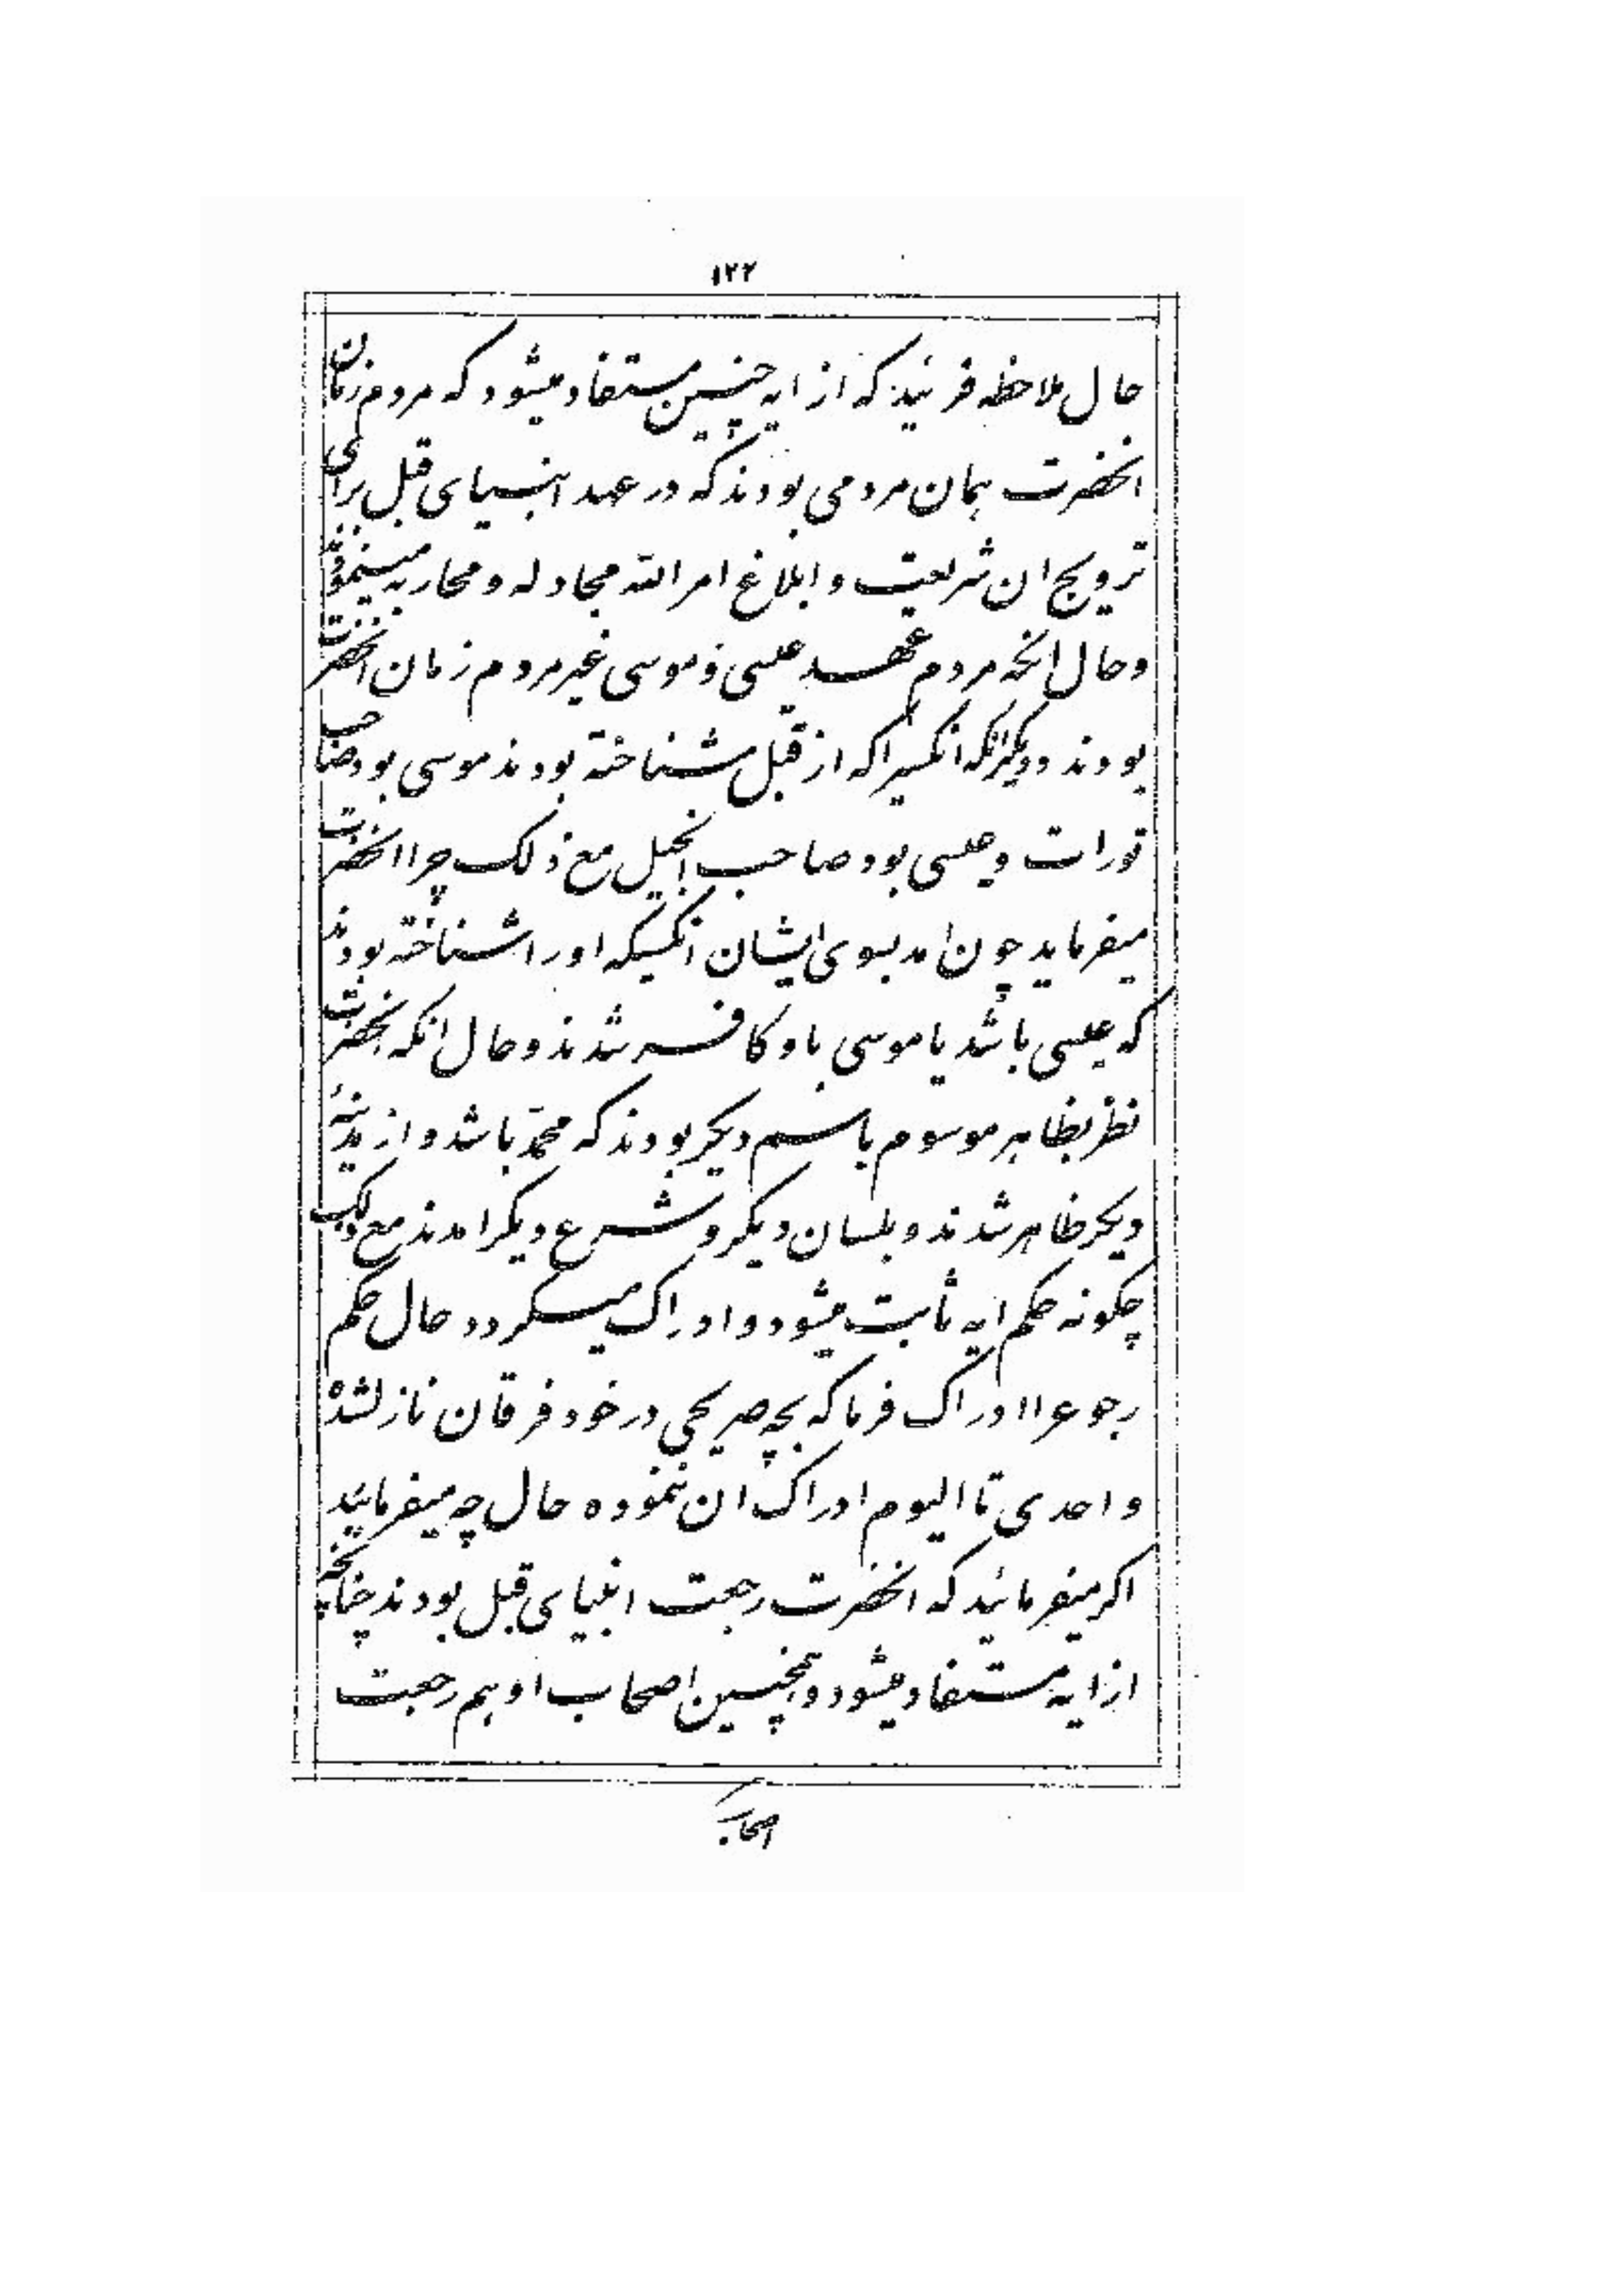 ١٢٢
حال ملاحظه فرمائید که از ایه چنین مستفاد میشود که مردم زمان
انحضرت همان مردمی بودند که در عهد انبیای قبل برای
ترویج ان شریعت و ابلاغ امر الله مجادله و محاربه مینمودند
و حال انکه مردم عهد عیسی و موسی غیر مردم زمان انحضرت
بودند و دیگر انکه انکسیرا که از قبل شناخته بودند موسی بود صاحب
تورات و عیسی بود صاحب انجیل مع ذلک چرا انحضرت
میفرماید چون امد بسوی ایشان انکسیکه او را شناخته بودند
که عیسی باشد یا موسی باو کافر شدند و حال انکه انحضرت
نظر بظاهر موسوم باسم دیگر بودند که محمّد باشد و از مدینهٔ
دیگر ظاهر شدند و بلسان دیگر و شرع دیگر امدند مع ذلک
چگونه حکم ایه ثابت میشود و ادراک میگردد حال حکم
رجوع را ادراک فرما که بچه صریحی در خود فرقان نازلشده
و احدی تا الیوم ادراک ان ننموده حال چه میفرمائید
اکر میفرمائید که انحضرت رجعت انبیای قبل بودند چنانچه
از ایه مستفاد میشود و همچنین اصحاب او هم رجعت
اصحاب